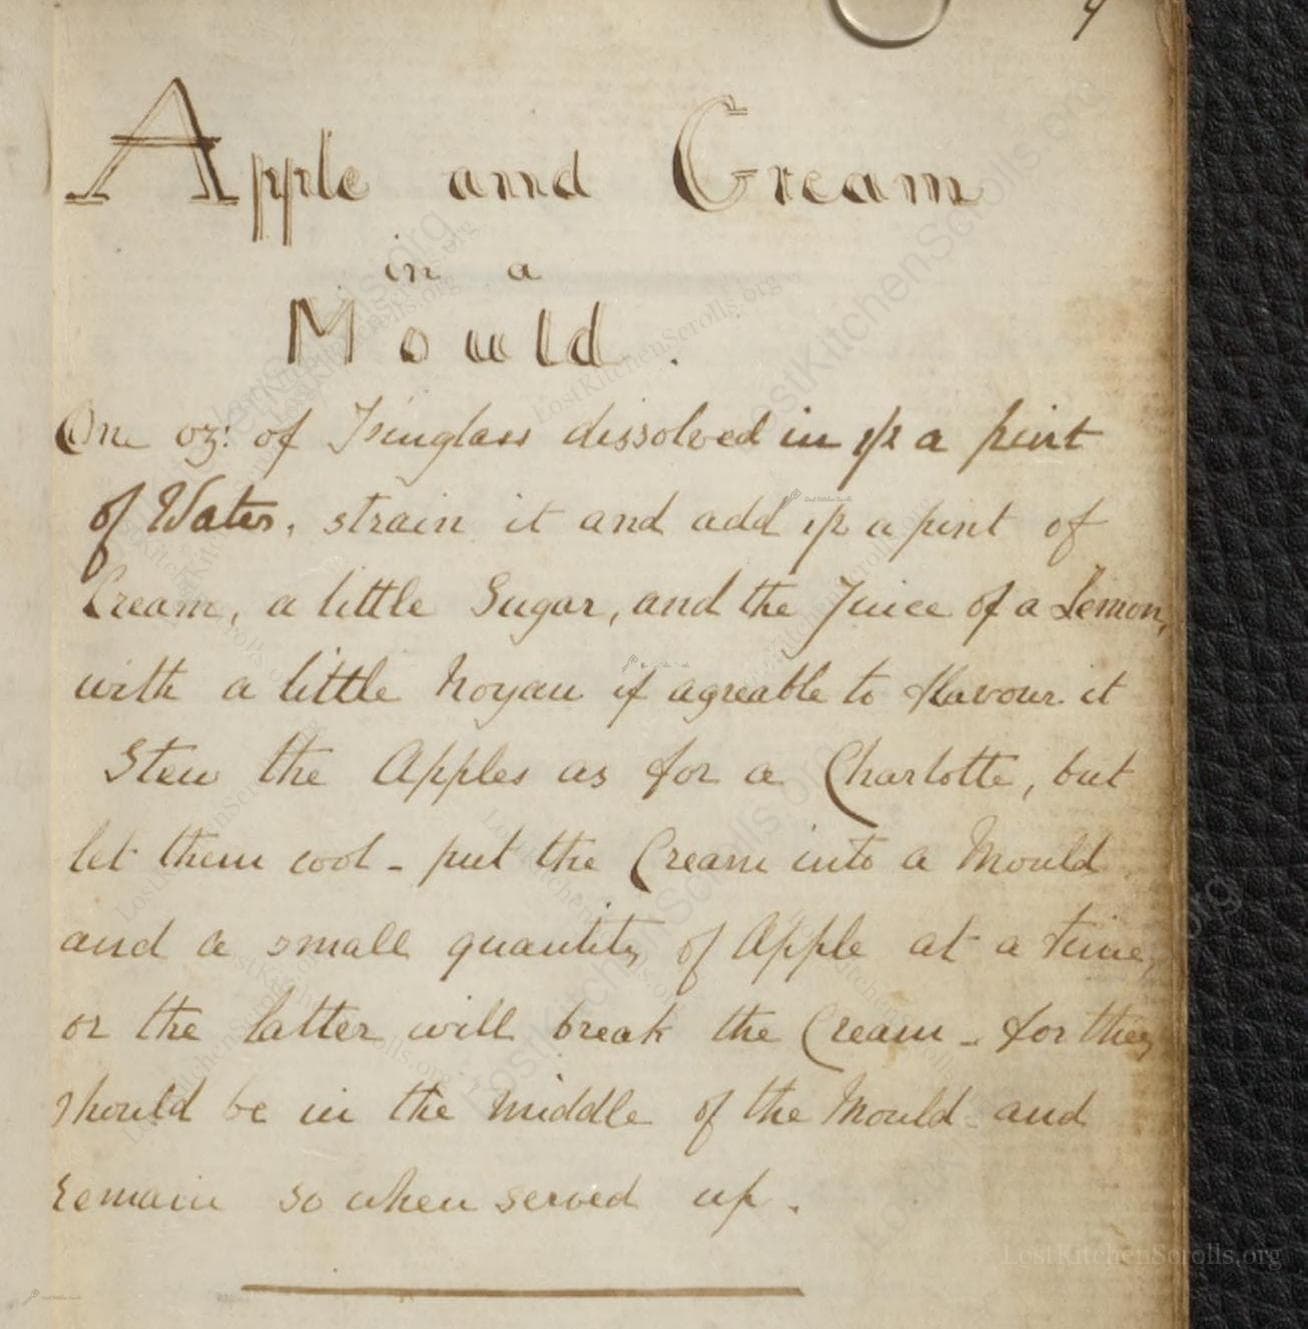 9
Apple and Cream
in a
Mould.
One oz: of Isinglass dissolved in 1/2 a pint
of Water, strain it and add 1/2 a pint of
Cream, a little Sugar, and the Juice of a Lemon,
with a little Noyau if agreable to flavour it
Stew the Apples as for a Charlotte, but
let them cool - put the Cream into a Mould
and a small quantity of Apple at a time,
or the latter will break the Cream - for they
should be in the middle of the Mould and
remain so when served up.
LostKitchenScrolls.org